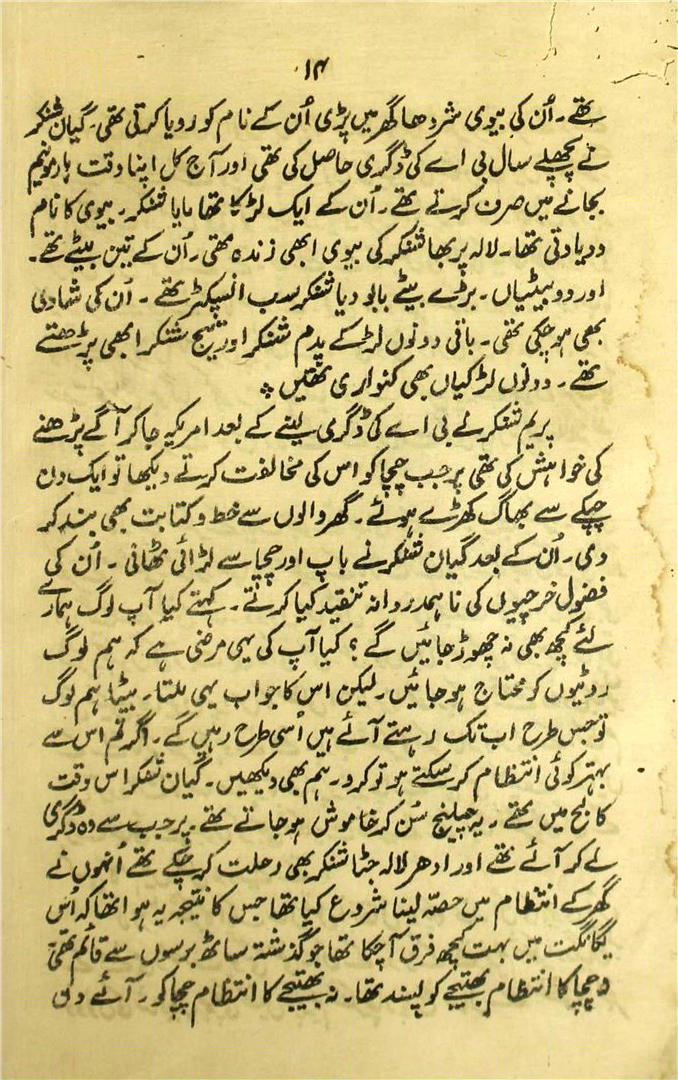 ۱۴
تھے۔ اُن کی بیوی شردھا گھر میں پڑی اُن کے نام کو رویا کرتی تھی۔ گیان شنکر
نے پچھلے سال بی اے کی ڈگری حاصل کی تھی اور آج کل اپنا وقت ہارمونیم
بجانے میں صرف کرتے تھے۔ اُن کے ایک لڑکا تھا مایا شنکر۔ بیوی کا نام
ودیاوتی تھا۔ لالہ پربھا شنکر کی بیوی ابھی زندہ تھی۔ اُن کے تین بیٹے تھے۔
اور دو بیٹیاں۔ بڑے بیٹے بابو دیا شنکر سب انسپکٹر تھے۔ اُن کی شادی
بھی ہو چکی تھی۔ باقی دونوں لڑکے پدم شنکر اور تیج شنکر ابھی پڑھتے
تھے۔ دونوں لڑکیاں بھی کنواری تھیں
پریم شنکر نے بی اے کی ڈگری لینے کے بعد امریکہ جا کر آگے پڑھنے
کی خواہش کی تھی پر جب چچا کو اس کی مخالفت کرتے دیکھا تو ایک دن
چپکے سے بھاگ کھڑے ہوئے۔ گھر والوں سے خط و کتابت بھی بند کر
دی۔ اُن کے بعد گیان شنکر نے باپ اور چچا سے لڑائی ٹھانی۔ اُن کی
فضول خرچیوں کی ناہمدردانہ تنقید کیا کرتے۔ کہتے کیا آپ لوگ ہمارے
لئے کچھ بھی نہ چھوڑ جائیں گے؟ کیا آپ کی یہی مرضی ہے کہ ہم لوگ
روٹیوں کو محتاج ہو جائیں۔ لیکن اس کا جواب یہی ملتا۔ بیٹا ہم لوگ
تو جس طرح اب تک رہتے آئے ہیں اُسی طرح رہیں گے۔ اگر تم اس سے
بہتر کوئی انتظام کر سکتے ہو تو کرو۔ ہم بھی دیکھیں۔ گیان شنکر اس وقت
کالج میں تھے۔ یہ چیلنج سُن کر خاموش ہو جاتے تھے۔ پر جب سے وہ ڈگری
لے کر آئے تھے اور ادھر لالہ جٹا شنکر بھی رحلت کر چکے تھے اُنہوں نے
گھر کے انتظام میں حصہ لینا شروع کیا تھا جس کا نتیجہ یہ ہوا تھا کہ اُس
یگانگت میں بہت کچھ فرق آ چکا تھا جو گذشتہ ساٹھ برسوں سے قائم تھی
نہ چچا کا انتظام بھتیجے کو پسند تھا۔ نہ بھتیجے کا انتظام چچا کو۔ آئے دن